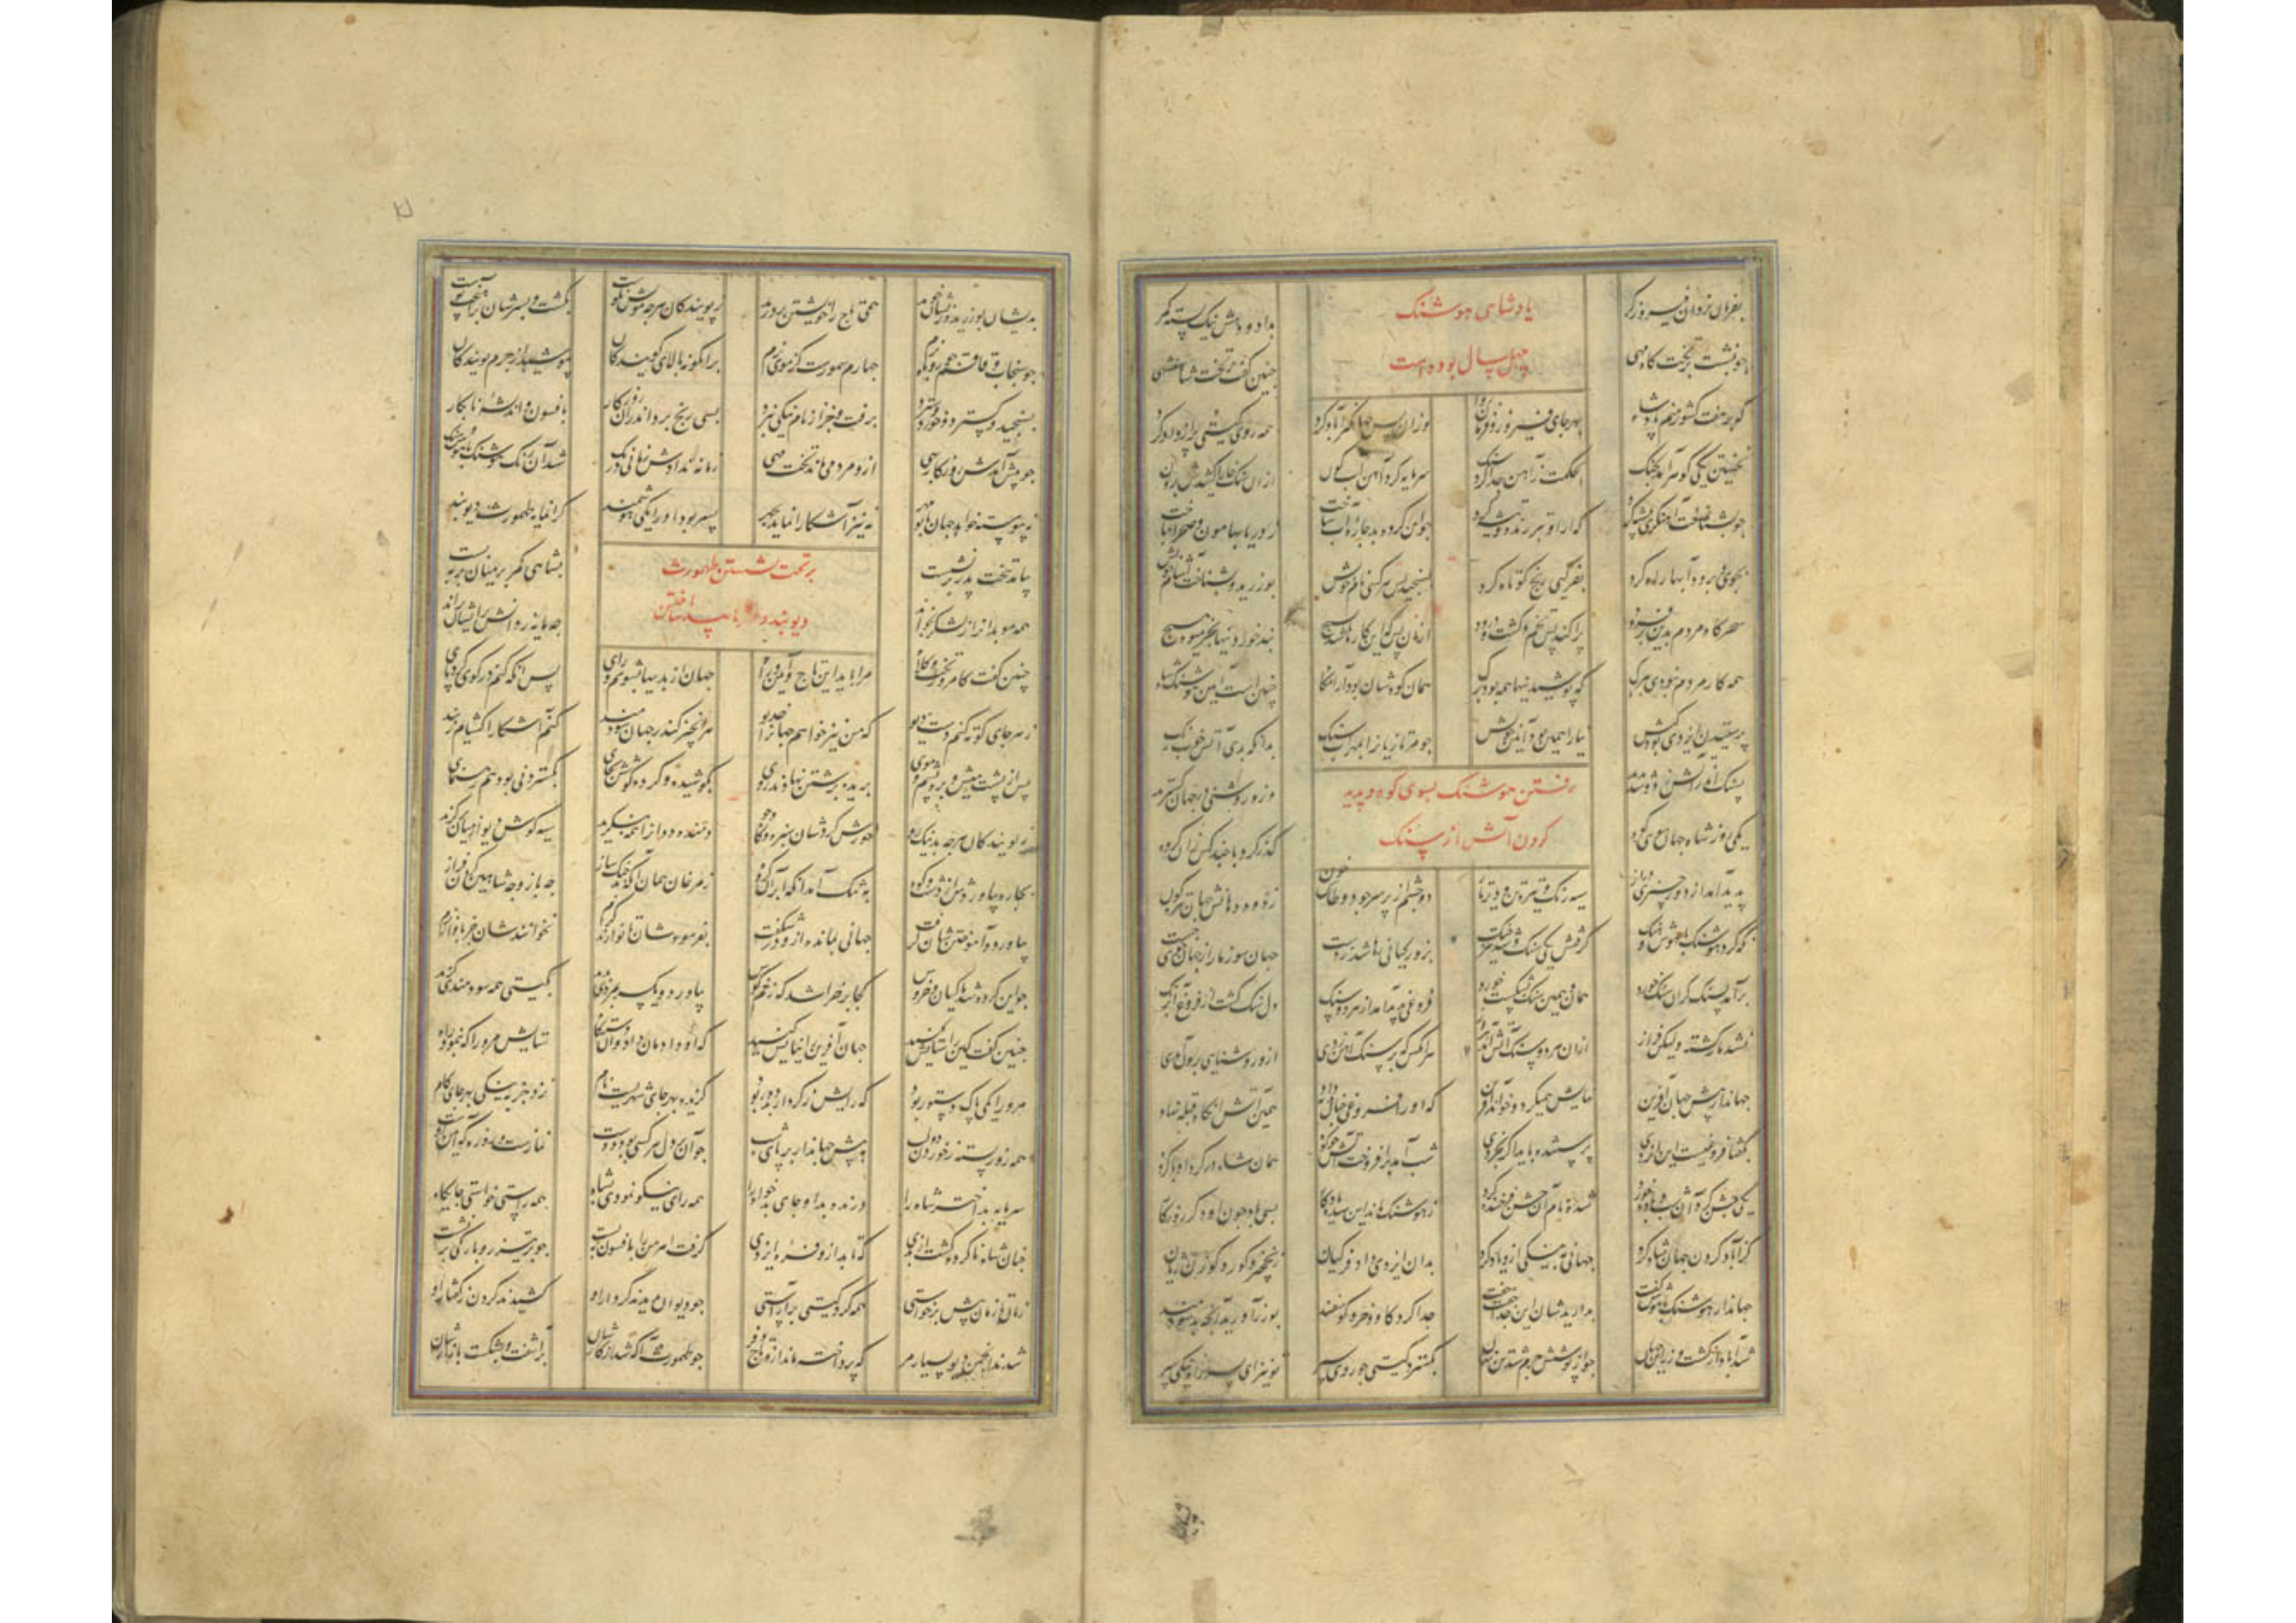 پادشاهی هوشنک
چهل سال بوده است
بفرمان یزدان فیروزکر بداد و دهش نیک بسته کمر
چو بنشست بر تخت کاه مهی چنین گفت بر تخت شاهنشهی
که بر هفت کشور منم پادشا بهر جای فیروز و فرمان روا وزان پس جهان یکسر آباد کرد همه روی کیتی پر از داد کرد
نخستین یکی کوهر آمد بچنک بحکمت ز آهن جدا کرد سنک سرمایه کرد آهن آب کون ازان سنک خارا کشیدش برون
چو بشناخت آهنکری پیشه کرد تبر اره و تیشه کرد چو این کرده شد چاره آب ساخت ز دریا بهامون و صحرا بتاخت
بجوی و برود آبها راه کرد بفر کیی رنج کوتاه کرد بسنجید پس هر کسی نان خویش بورزید و بشناخت سامان خویش
مردم بدین بر فزود پراکند پس تخم و کشت و درود ازان پس که این کارها شد بسیچ نبد خوردنیها بجز میوه هیچ
همه کار مردم نبودی ببرک که پوشیدنیها همه بود برک همان کوه شان بود آرامکاه چنین است آیین هوشنک شاه
پرستیدن ایزدی بود کیش نیا را همین بود آیین و پیش چو مر تازیان را بمحراب سنک بدانکه بدی آتش خوب رنک
رفتن هوشنک بسوی کوه و پدید
کردن آتش از سنک
بسنک اندر آتش ازو شد پدید وزو روشنی در جهان کسترید
یکی روز شاه جهان سوی کوه کذر کرد با چند کس هم کروه
پدید آمد از دور چیزی دراز سیه رنک و تیره تن و تیزتاز دو چشم از بر سر چو دو خون ز دود دهانش جهان تیره کون
نکه کرد هوشنک باهوش و هنک کرفتش یکی سنک و شد تیز جنک بزور کیانی دست جهان سوز مار از جهان جوی جست
برآمد بسنک کران سنک خورد همان و همین سنک بشکست خورد فروغی پدید آمد از هر دو سنک دل سنک کشت از فروغ آذرنک
نشد مار کشته ولیکن ز راز ازان هر دو سنک آتش آمد فراز هر انکس که بر سنک آهن زدی ازو روشنایی پدید آمدی
جهاندار پیش جهان آفرین نیایش همیکرد و خواند آفرین که او را فروغی چنان هدیه داد همین آتش آنکاه قبله نهاد
بکفتا فروغیست این ایزدی پرستید باید اکر بخردی شب آمد برافروخت آتش چو کوه همان شاه در کرد او با کروه
یکی جشن کرد آن شب و باده خورد سده نام آن جشن فرخنده کرد ز هوشنک ماند این سده یادکار بسی باد چون او دکر روزکار
کز آباد کردن جهان شاد کرد جهانی به نیکی ازو یاد کرد بدان ایزدی داد و فر کیان ز نخچیر و کور و کوزن ژیان
جهاندار هوشنک باهوش کفت بدارید شان این جدا جفت جفت جدا کرد کاو و خر و کوسفند بورز آورید آنچه بد سودمند
بدیشان بورزید و زیشان خورید همی تاج را خویشتن پرورید ز پویندکان هر چه مویش نکوست بکشت و بسرشان برآهیخت پوست
چو سنجاب و قاقم چو روباه نرم چهارم سمورست کز موی نرم برین کونه بالای کویندکان بپوشید از چرم پویندکان
بسنجید و کسترد و خورد و سپرد برفت و جز از نام نیکی نبرد بسی رنج برد اندران روزکار بافسون و اندیشه نابکار
چو پیش آمدش روزکار بهی ازو مردمی ماند تخت مهی زمانه ندادش زمانی درنک شد آن هوشنک باهوش و سنک
نپیوسته خواهد جهان با تو مهر نه نیز آشکارا نماید چهر پسر بود او را یکی هوشمند کرانمایه طهمورث دیوبند
برتخت نشستن طهمورث
بیامد بتخت پدر بر نشست بشاهی کمر بر میان بر ببست
همه موبدان را ز لشکر بخواند
چنین کفت کامروز تخت و کلاه مرا باید این تاج جهان از بدیها بشویم برای پس آنکه کنم در کوی کرد پای
ز هر جای کوته کنم دست دیو که من نیز خواهم جهانرا خدیو هر آن چیز کاندر جهان سودمند کنم آشکارا کشایم ز بند
پس از پشت میش و بره پشم و موی برید و برشتن نهادند روی بکوشیده و کرده کوشش بجای بکستردنی بود هم رهنمای
ز پویندکان هر چه بد نیک رو خورش کردشان سبزه و کاه و جو رمنده ددان را همه بنکرید سیه کوش و یوز از میان برکزید
بچاره بیاوردش از دشت و کوه آمد انکه بد زان کروه ز مرغان همان آنکه بد نیک ساز چه باز و چه شاهین کردن فراز
بیاورد و آموختن شان کرفت جهانی بمانده ازو در شکفت بفرمودشان تا نوازند کرم نخوانندشان جز بآواز نرم
چو این کرده شد ماکیان و خروس کجا بر خروشد که زخم کوس بیاورد بکیتی همه سودمندی کزید
چنین کفت کین را ستایش کنید جهان آفرین را نیایش کنید که او دادمان بر ددان دستکاه ستایش مر او را که بنمود راه
مر او را یکی پاک دستور بود که رایش ز کردار بد دور بود کزیده بهر جای نام نزد جز به نیکی بهر جای کام
همه روز بسته ز خوردن دو لب به پیش جهاندار بر پای شب چو آن بر دل هر کسی بود دوست نماز شب و روزه آیین اوست
سرمایه بد اختر شاه را در بند بد او جان بدخواه را همه رای نیکو نمودی بشاه همه راستی خواستی جایکاه
چنان شاه پالوده کشت از بدی که تابید ازو فره ایزدی برفت اهرمن را بافسون ببست چو بر تیزرو بارکی بر نشست
زمان تا زمان زینش برخواستی همی کرد کیتیش برآراستی چو دیوان بدیدند کردار او کشیدند کردن ز کفتار او
شدند انجمن دیو بسیار مر که پردخته ماند ازو تاج و فر چو طهمورث آکه شد از کارشان برآشفت و بشکست بازارشان